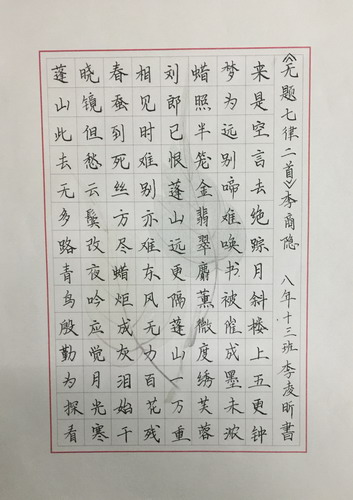 《无题七律二首》李商隐 八年十三班李凌昕書
来是空言去绝踪月斜楼上五更钟
梦为远别啼难唤书被催成墨未浓
蜡照半笼金翡翠麝薰微度绣芙蓉
刘郎已恨蓬山远更隔蓬山一万重
相见时难别亦难东风无力百花残
春蚕到死丝方尽蜡炬成灰泪始干
晓镜但愁云鬓改夜吟应觉月光寒
蓬山此去无多路青鸟殷勤为探看